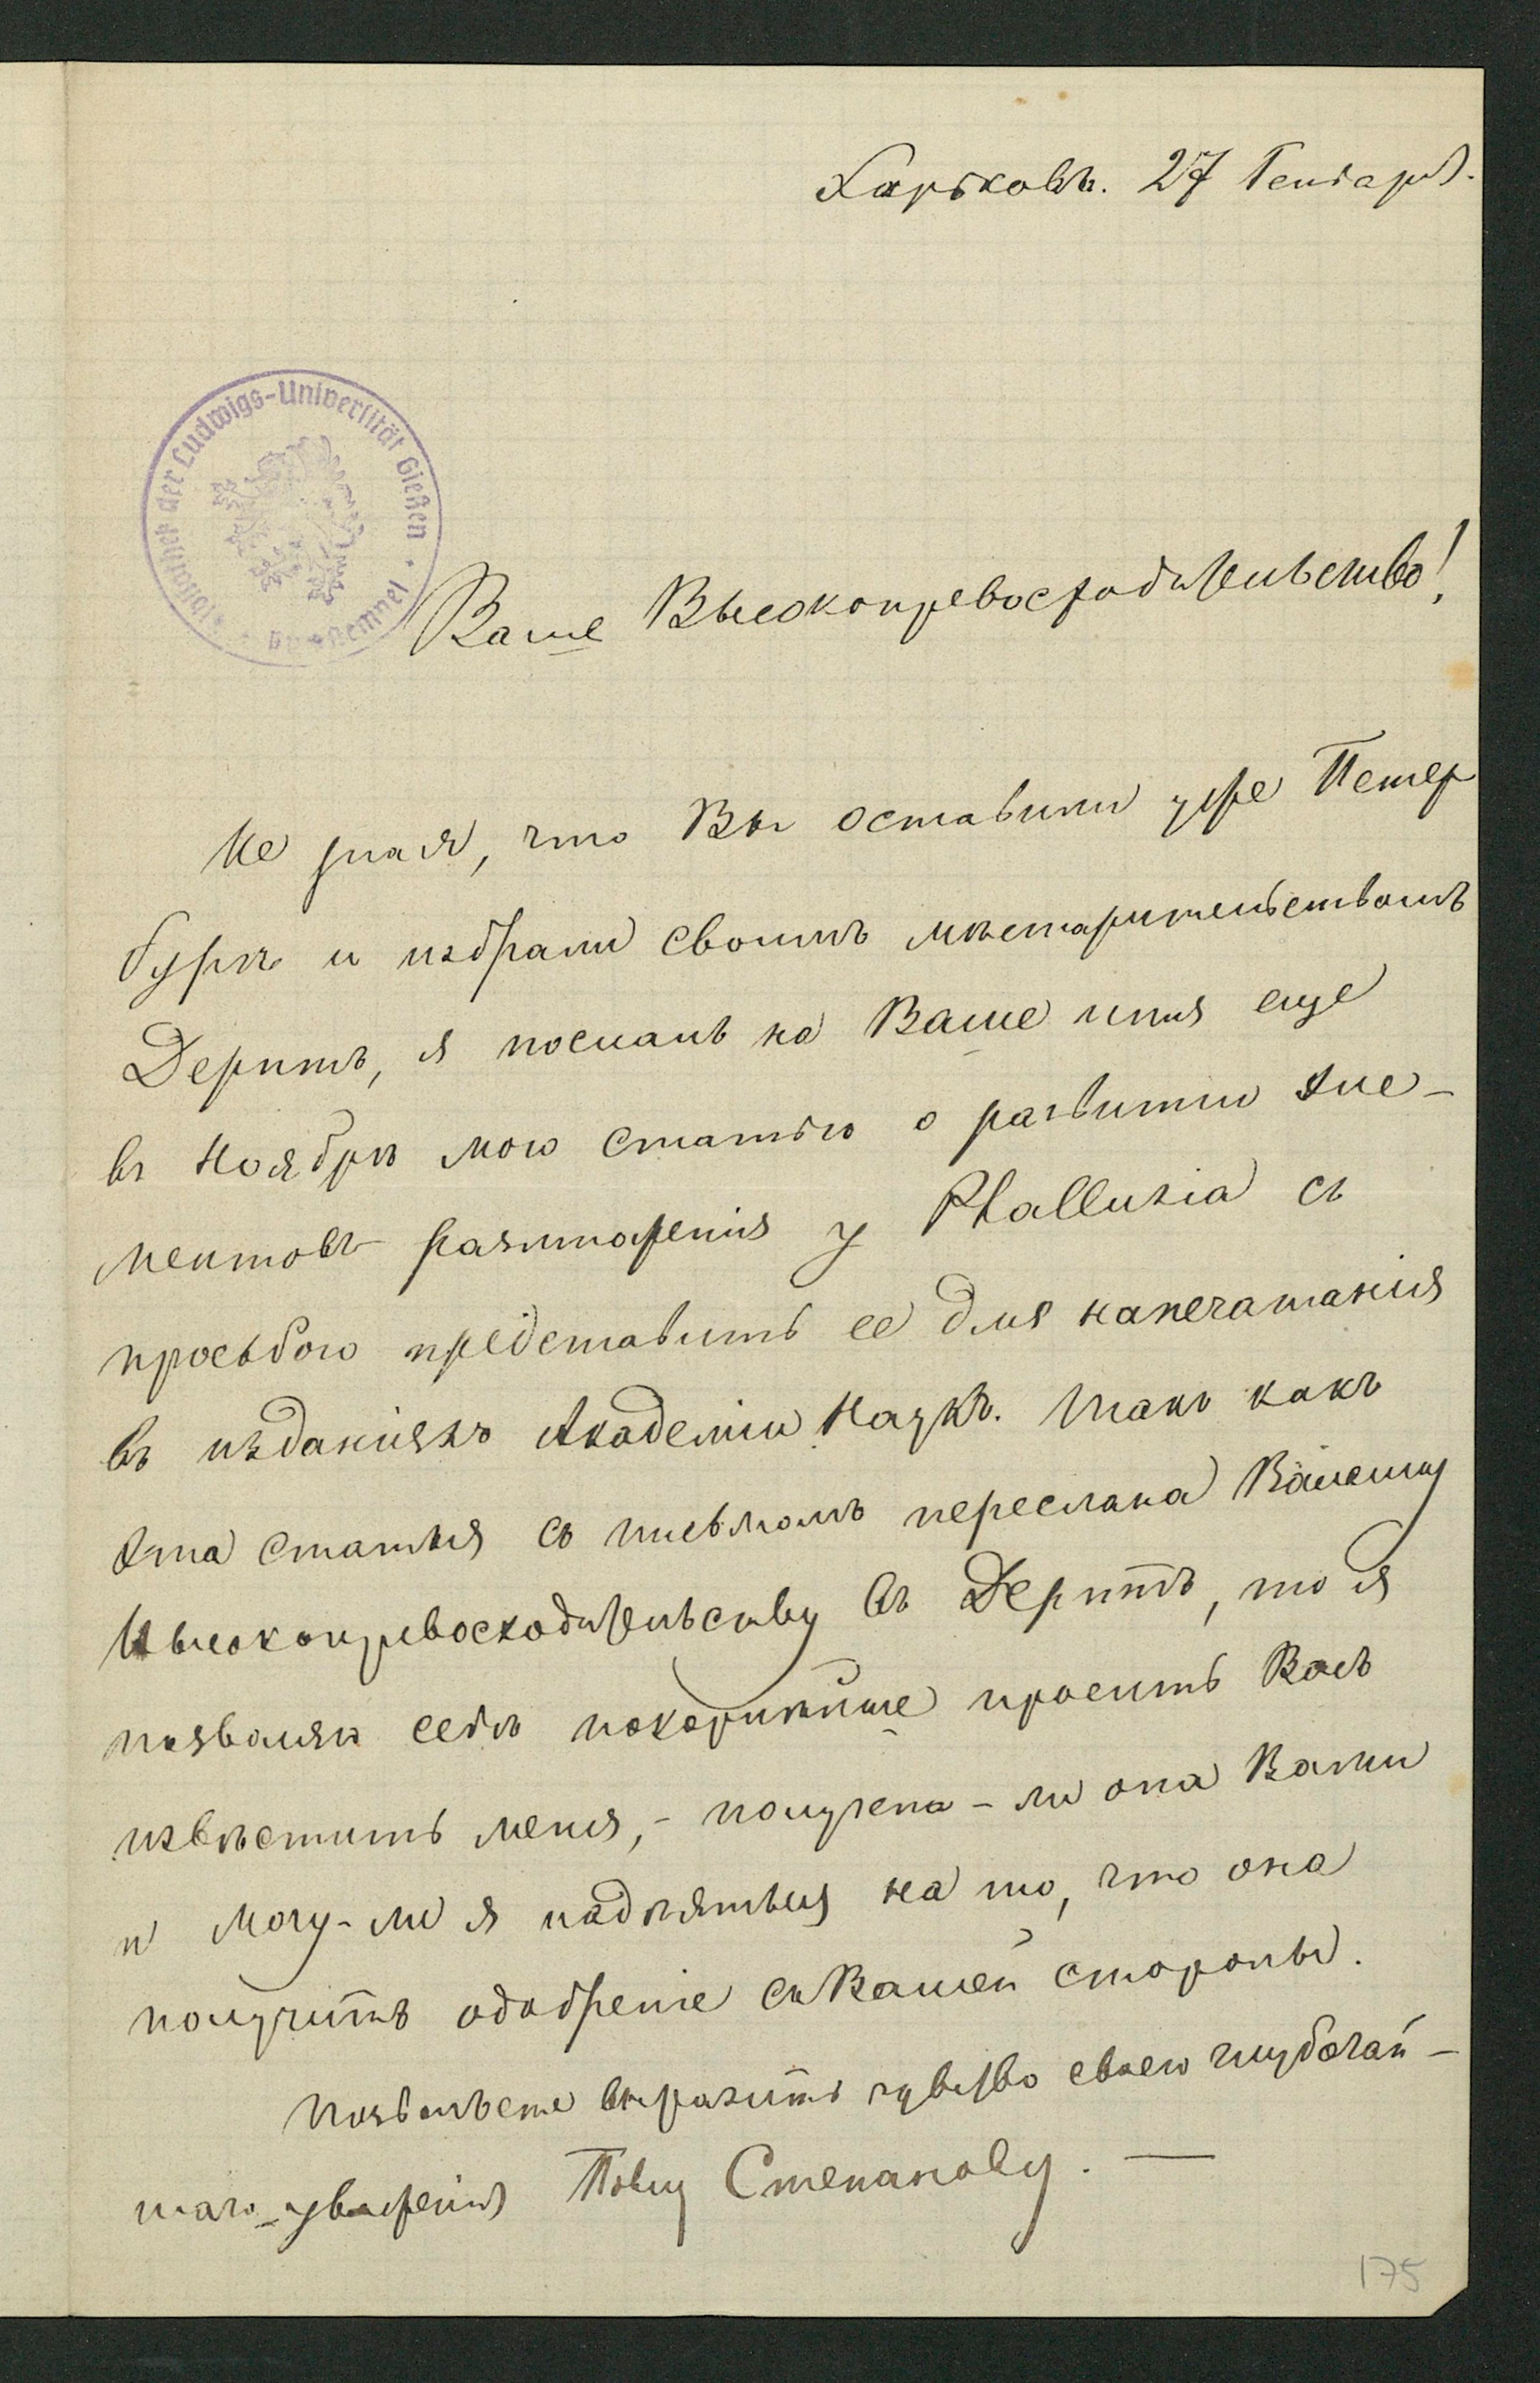 Харьковъ. 27 Генваря.
der Ludwigs-Universität Gießen
Ваше Высокопревосходительство!
Не зная, что Вы оставили уже Петер
бургъ и избрали своимъ мѣстожительствомъ
Дерптъ, я послалъ на Ваше имя еще
въ Ноябрѣ мою статью о развитіи эле-
ментовъ размноженія у Phallusia съ
просьбою представить ее для напечатанія
въ изданіяхъ Академіи Наукъ. Такъ какъ
эта статья съ письмомъ переслана Вашему
Высокопревосходительству въ Дерптъ, то я
позволяю себѣ покорнѣйше просить Васъ
извѣстить меня, - получена-ли она Вами
и могу-ли я надѣяться на то, что она
получитъ одобреніе съ Вашей стороны.
Позвольте выразить чувство своего глубочай-
шаго уваженія Степанову. —
175